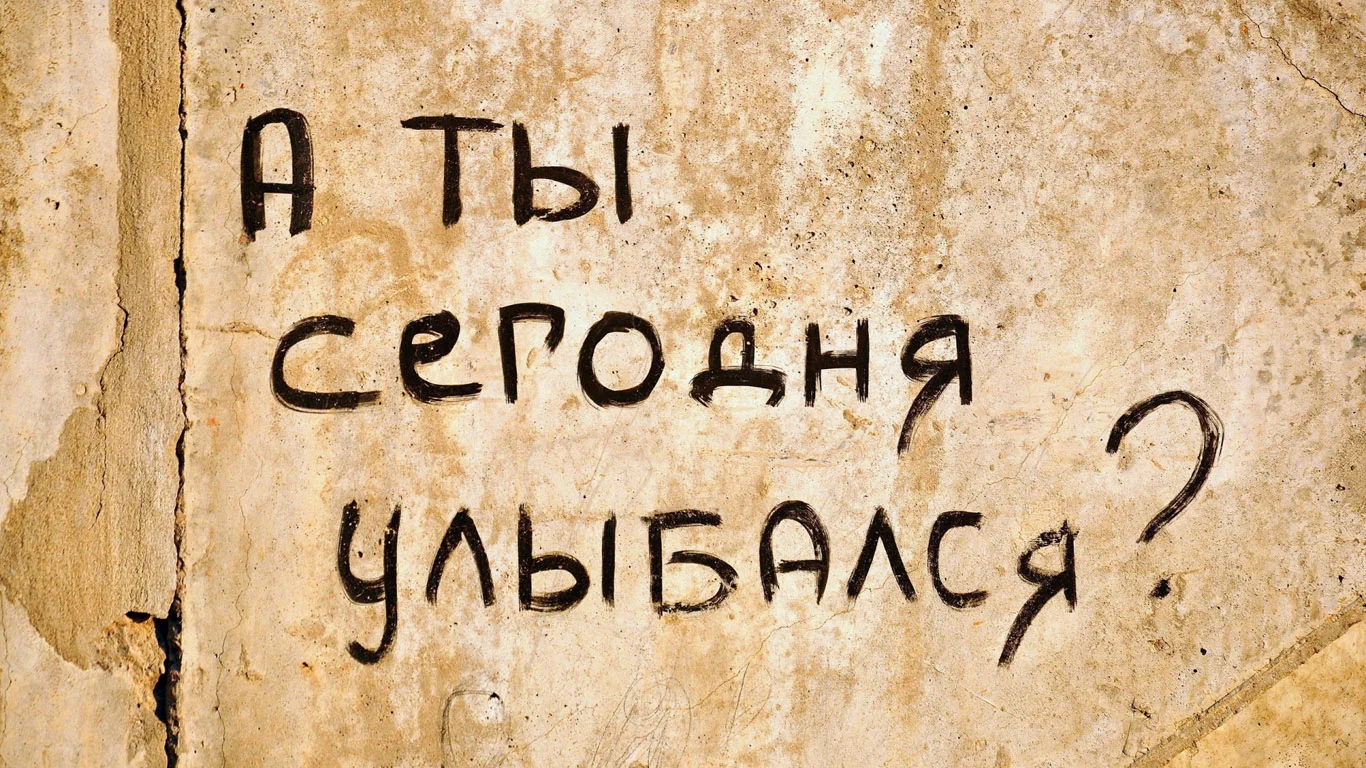 А ты
сегодня
улыбался?